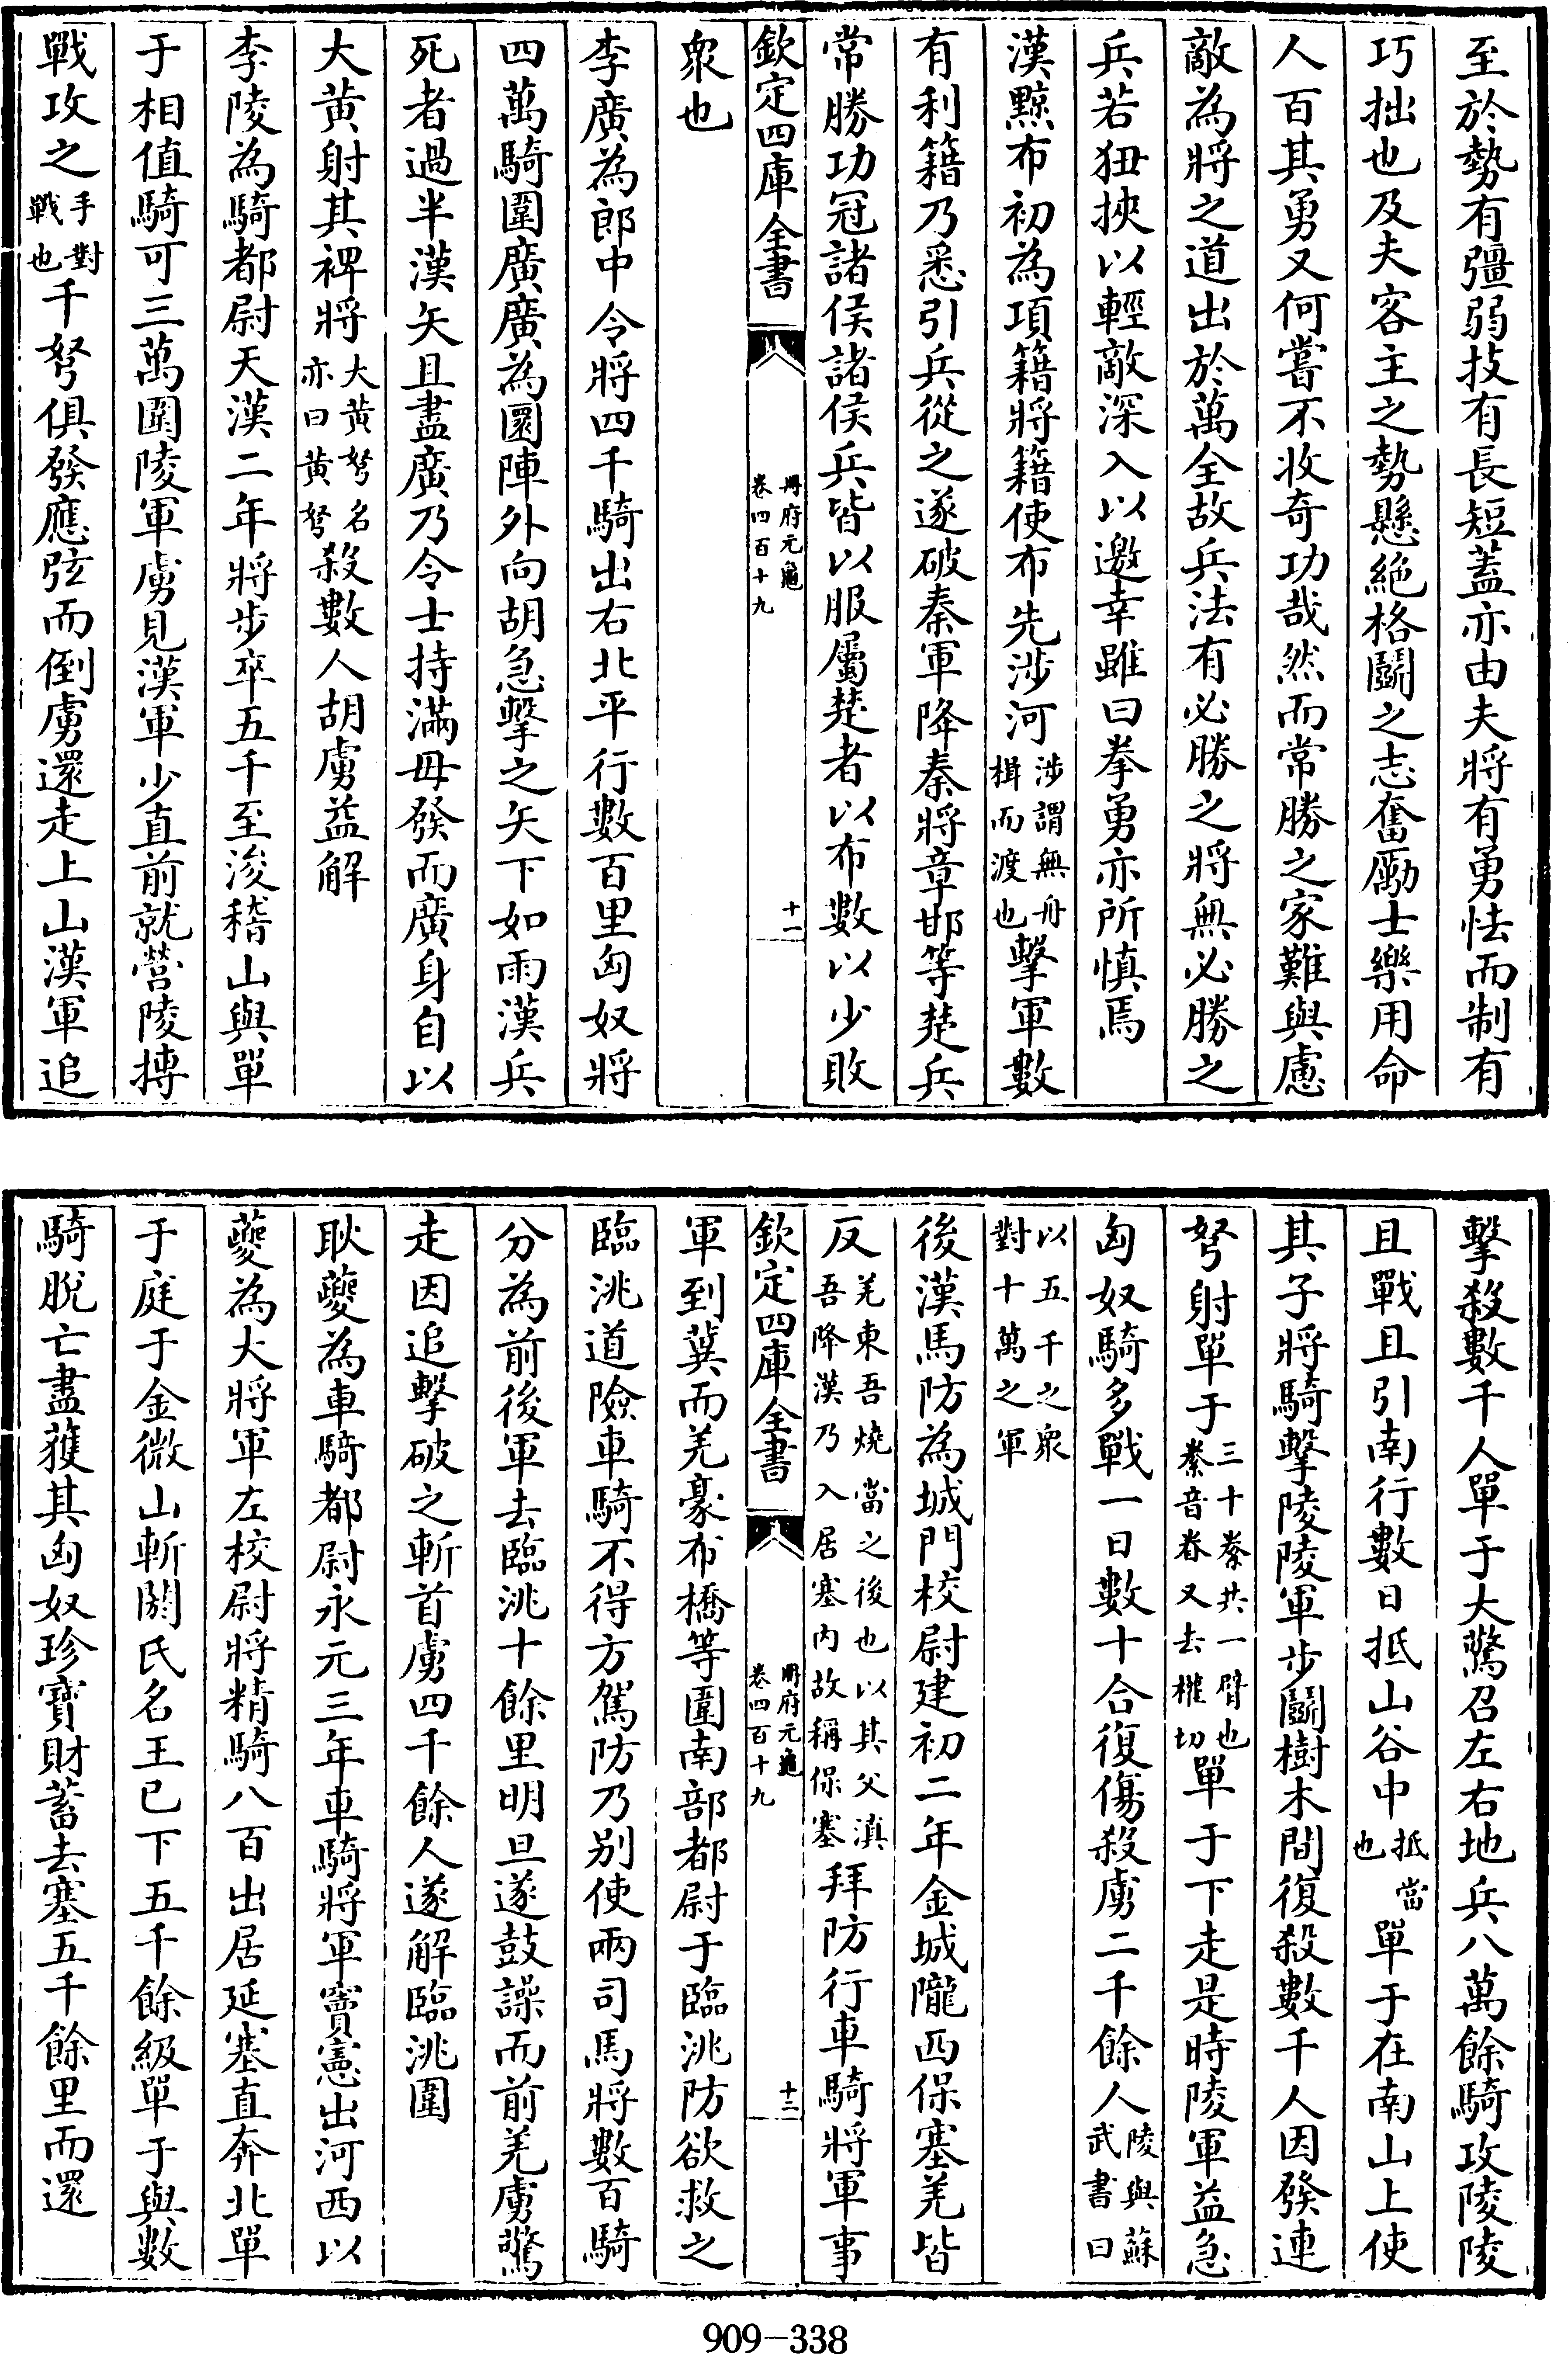 至於勢有彊弱技有長短蓋亦由夫將有勇怯而制有
巧拙也及夫客主之勢懸絶格鬭之志奮勵士樂用命
人百其勇又何嘗不收奇功哉然而常勝之家難與慮
敵為將之道出於萬全故兵法有必勝之將無必勝之
兵若狃挾以輕敵深入以邀幸雖曰拳勇亦所慎焉
漢黥布初為項籍將籍使布先涉河涉謂無舟楫而渡也擊軍數
有利籍乃悉引兵從之遂破秦軍降秦將章邯等楚兵
常勝功冠諸侯諸侯兵皆以服屬楚者以布數以少敗
欽定四庫全書 冊府元龜卷四百十九 十一
衆也
李廣為郎中令將四千騎出右北平行數百里匈奴將
四萬騎圍廣廣為圜陣外向胡急擊之矢下如雨漢兵
死者過半漢矢且盡廣乃令士持滿毋發而廣身自以
大黄射其裨將大黄弩名亦曰黄弩殺數人胡虜益解
李陵為騎都尉天漢二年將步卒五千至浚稽山與單
于相值騎可三萬圍陵軍虜見漢軍少直前就營陵摶
戰攻之手對戰也千弩俱發應弦而倒虜還走上山漢軍追
擊殺數千人單于大驚召左右地兵八萬餘騎攻陵陵
且戰且引南行數日抵山谷中抵當也單于在南山上使
其子將騎擊陵陵軍步鬭樹木間復殺數千人因發連
弩射單于三十絭共一臂也絭音眷又去權切單于下走是時陵軍益急
匈奴騎多戰一日數十合復傷殺虜二千餘人陵與蘇武書曰
以五千之衆對十萬之軍
後漢馬防為城門校尉建初二年金城隴西保塞羌皆
反羌東吾燒當之後也以其父滇吾降漢乃入居塞内故稱保塞拜防行車騎將軍事
欽定四庫全書 冊府元龜卷四百十九 十二
軍到冀而羌豪布橋等圍南部都尉于臨洮防欲救之
臨洮道險車騎不得方駕防乃别使兩司馬將數百騎
分為前後軍去臨洮十餘里明旦遂鼓譟而前羌虜驚
走因追擊破之斬首虜四千餘人遂解臨洮圍
耿夔為車騎都尉永元三年車騎將軍竇憲出河西以
夔為大將軍左校尉將精騎八百出居延塞直奔北單
于庭于金微山斬閼氏名王已下五千餘級單于與數
騎脱亡盡獲其匈奴珍寶財蓄去塞五千餘里而還
909-338